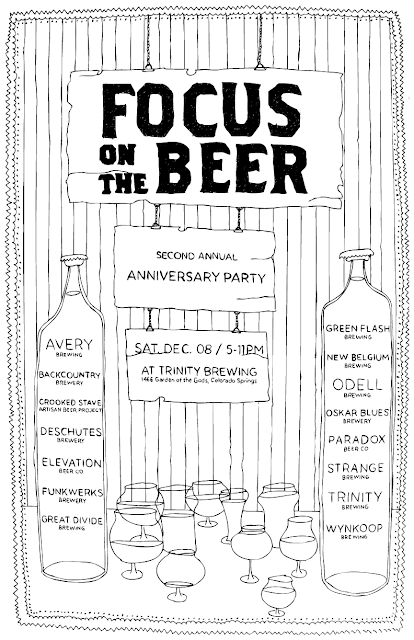 FOCUS
ON
THE BEER
SECOND ANNUAL
ANNIVERSARY PARTY
SAT. DEC. 08 / 5-11PM
AT TRINITY BREWING
1466 Garden of the Gods, Colorado Springs
AVERY
BREWING
BACKCOUNTRY
BREWERY
CROOKED STAVE
ARTISAN BEER PROJECT
DESCHUTES
BREWERY
ELEVATION
BEER CO.
FUNKWERKS
BREWERY
GREAT DIVIDE
BREWING
GREEN FLASH
BREWING
NEW BELGIUM
BREWING
ODELL
BREWING
OSKAR BLUES
BREWERY
PARADOX
BEER CO.
STRANGE
BREWING
TRINITY
BREWING
WYNKOOP
BREWING